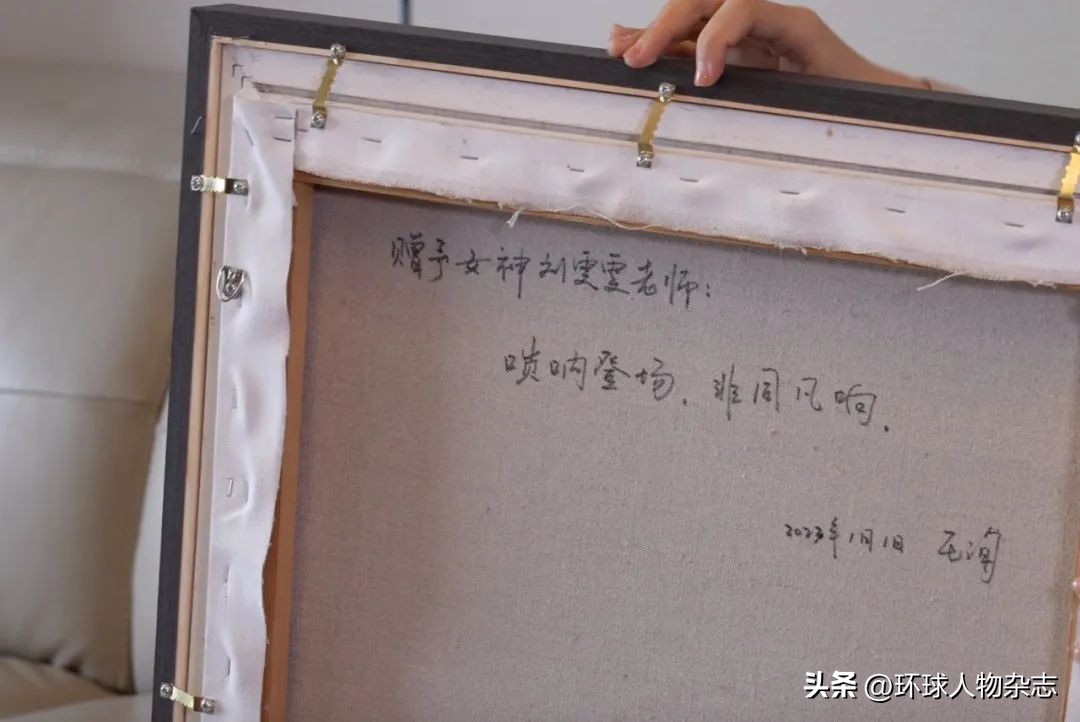 赠予女神刘雯雯老师：
唢呐登场，非同凡响．
2023年1月1日
头条 @环球人物杂志